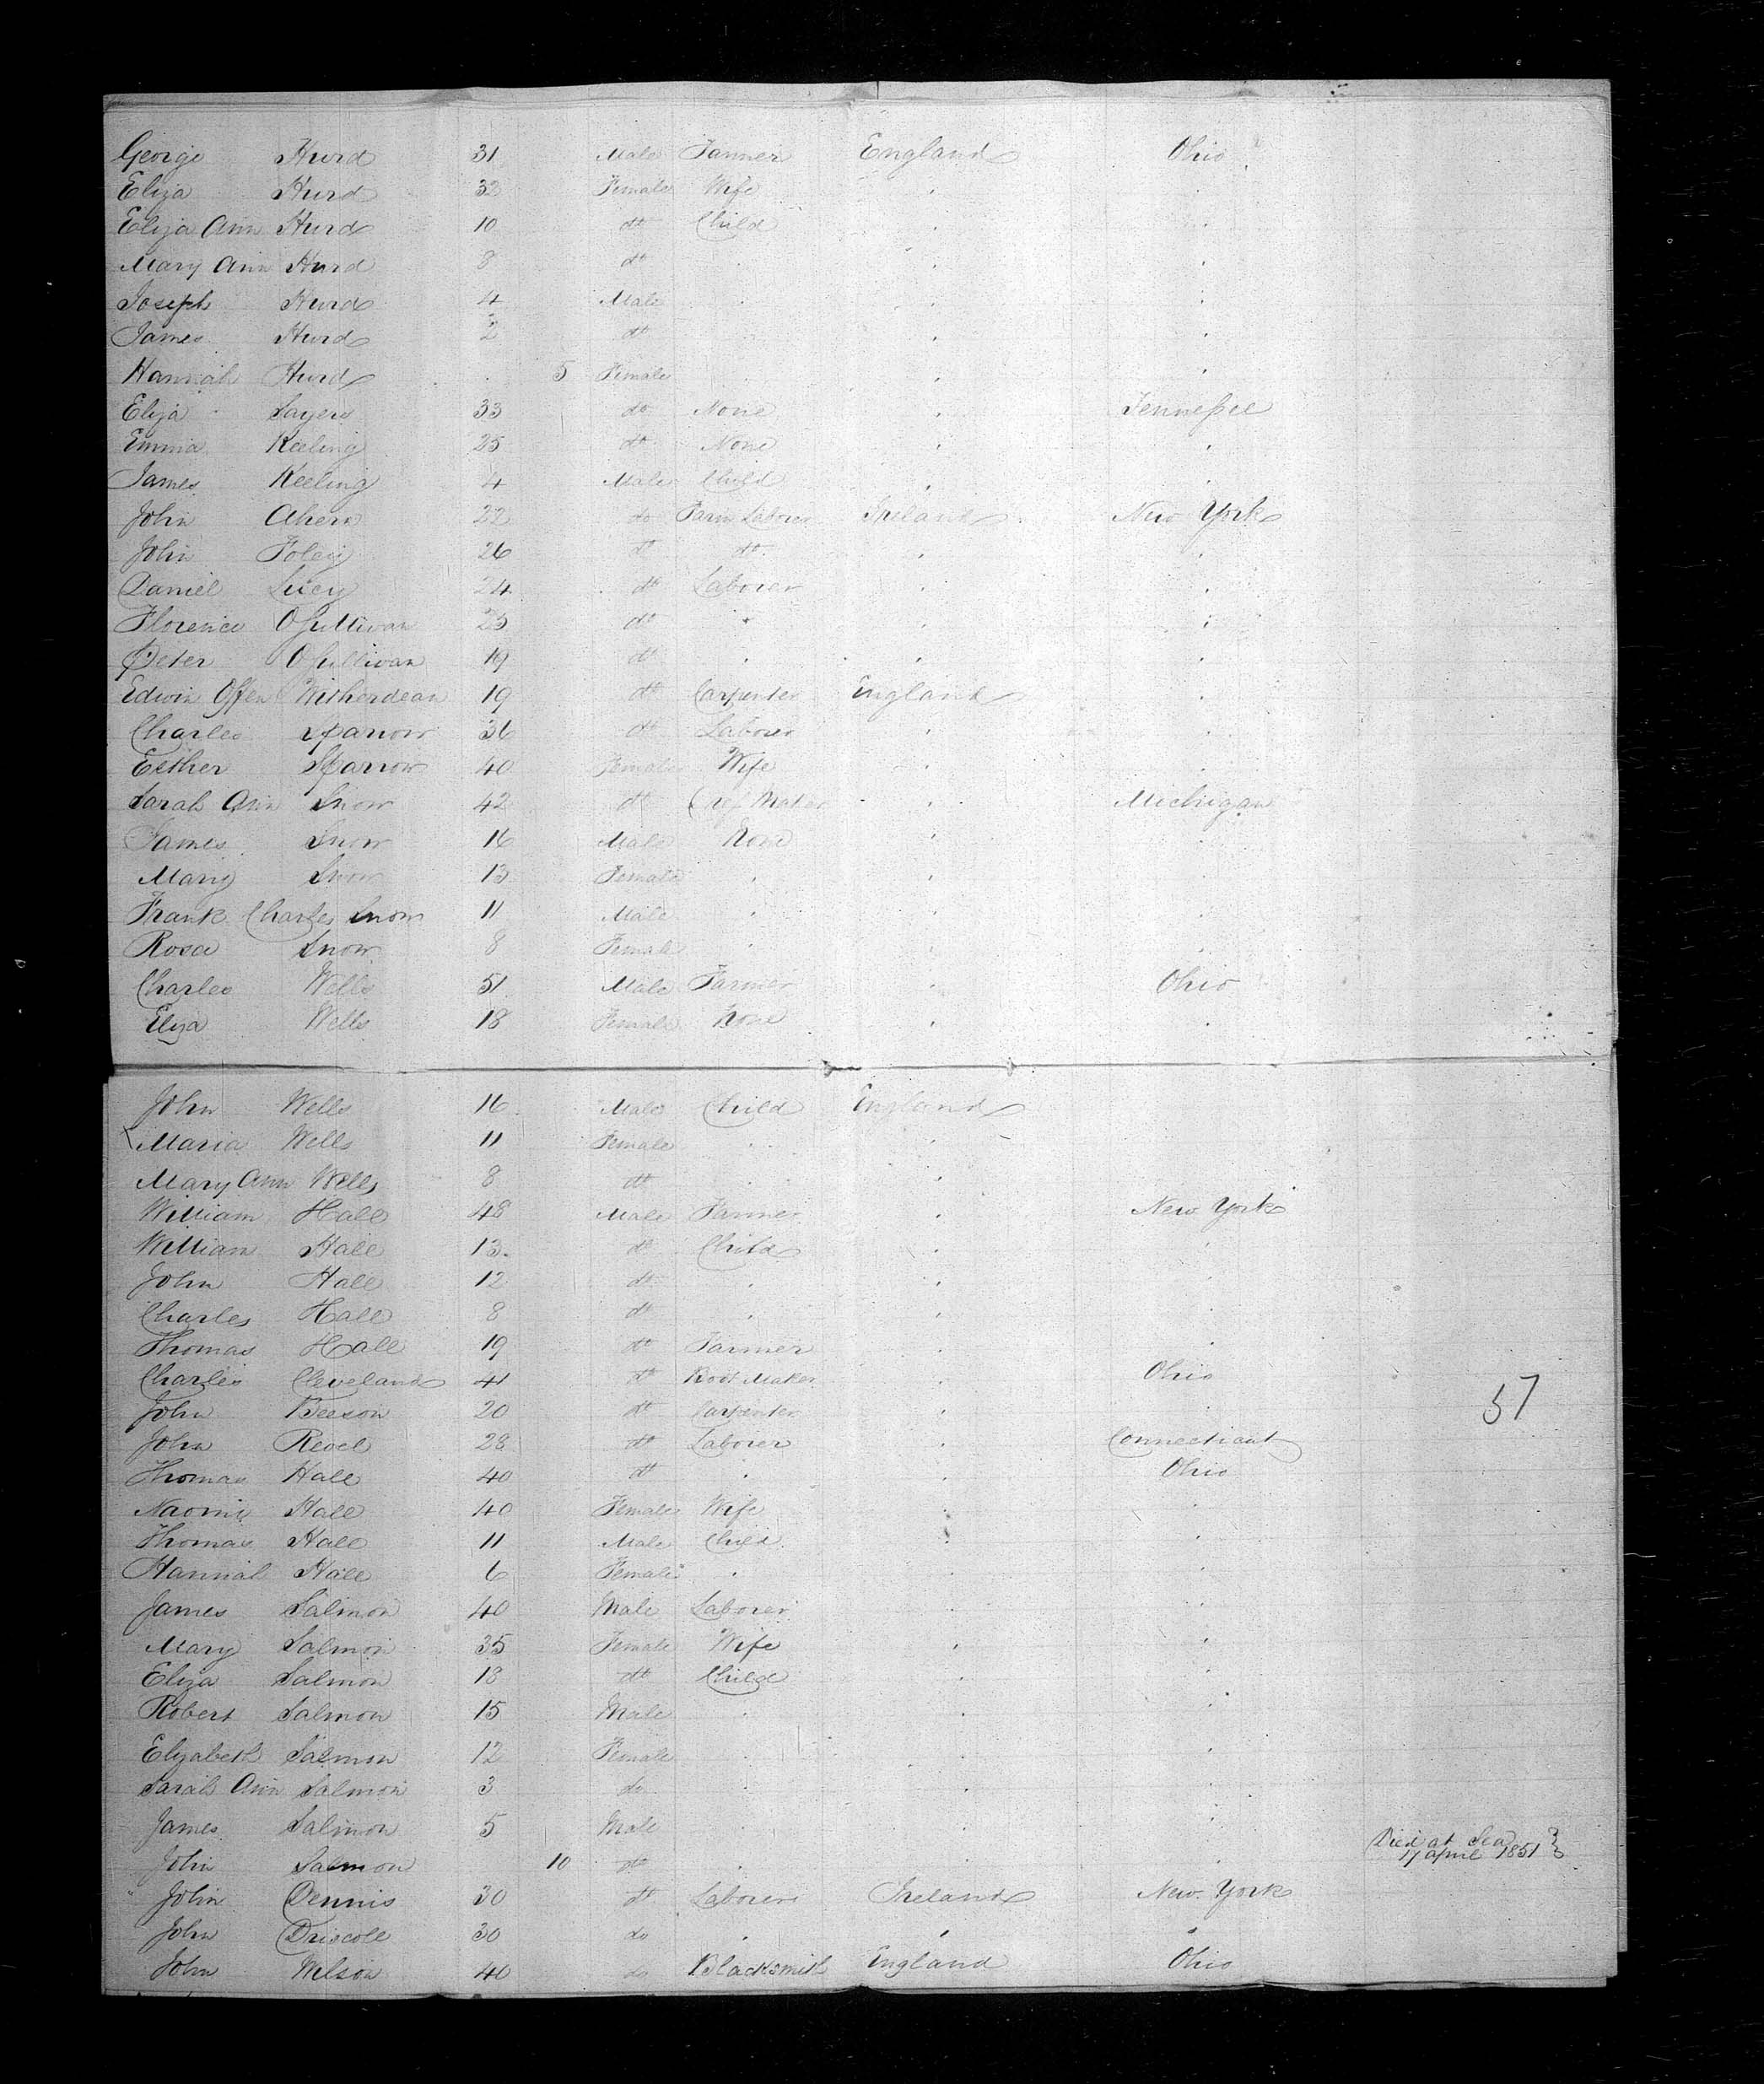 George Hurd 31 Male Farmer England Ohio
Eliza Hurd 32 Female Wife " "
Eliza Ann Hurd 10 do Child " "
Mary Ann Hurd 8 do " " "
Joseph Hurd 4 Male " " "
James Hurd 2 do " " "
Hannah Hurd 5 Female " " "
Eliza Sayers 33 do None " Tennessee
Emma Keeling 25 do None " "
James Keeling 4 Male Child " "
John Ahern 22 do Farm Laborer Ireland New York
John Foley 26 do do " "
Daniel Lucy 24 do Laborer " "
Florence OSullivan 25 do " " "
Peter OSullivan 19 do " " "
Edwin Offen Witherdean 19 do Carpenter England "
Charles Sparrow 36 do Laborer " "
Esther Sparrow 40 Female Wife " "
Sarah Ann Snow 42 do Maker " Michigan
James Snow 16 Male None " "
Mary Snow 13 Female " " "
Frank Charles Snow 11 Male " " "
Rosa Snow 8 Female " " "
Charles Wells 51 Male Farmer " Ohio
Eliza Wells 18 Female None " "
John Wells 16 Male Child England
Maria Wells 11 Female " "
Mary Ann Wells 8 do " "
William Hall 48 Male Farmer " New York
William Hall 13 do Child " "
John Hall 12 do " " "
Charles Hall 8 do " " "
Thomas Hall 19 do Farmer " "
Charles Cleveland 41 do Boot Maker " Ohio
John Beeson 20 do Carpenter " "
57
John Revel 28 do Laborer " Connecticut
Thomas Hall 40 do " " Ohio
Naomi Hall 40 Female Wife " "
Thomas Hall 11 Male Child " "
Hannah Hall 6 Female " " "
James Salmon 40 Male Laborer " "
Mary Salmon 35 Female Wife " "
Eliza Salmon 18 do Child " "
Robert Salmon 15 Male " " "
Elizabeth Salmon 12 Female " " "
Sarah Ann Salmon 3 do " " "
James Salmon 5 Male " " "
John Salmon 10 do " " " Died at Sea
17 April 1851
John Dennis 30 do Laborer Ireland New York
John Driscoll 30 do " " "
John Wilson 40 do Blacksmith England Ohio